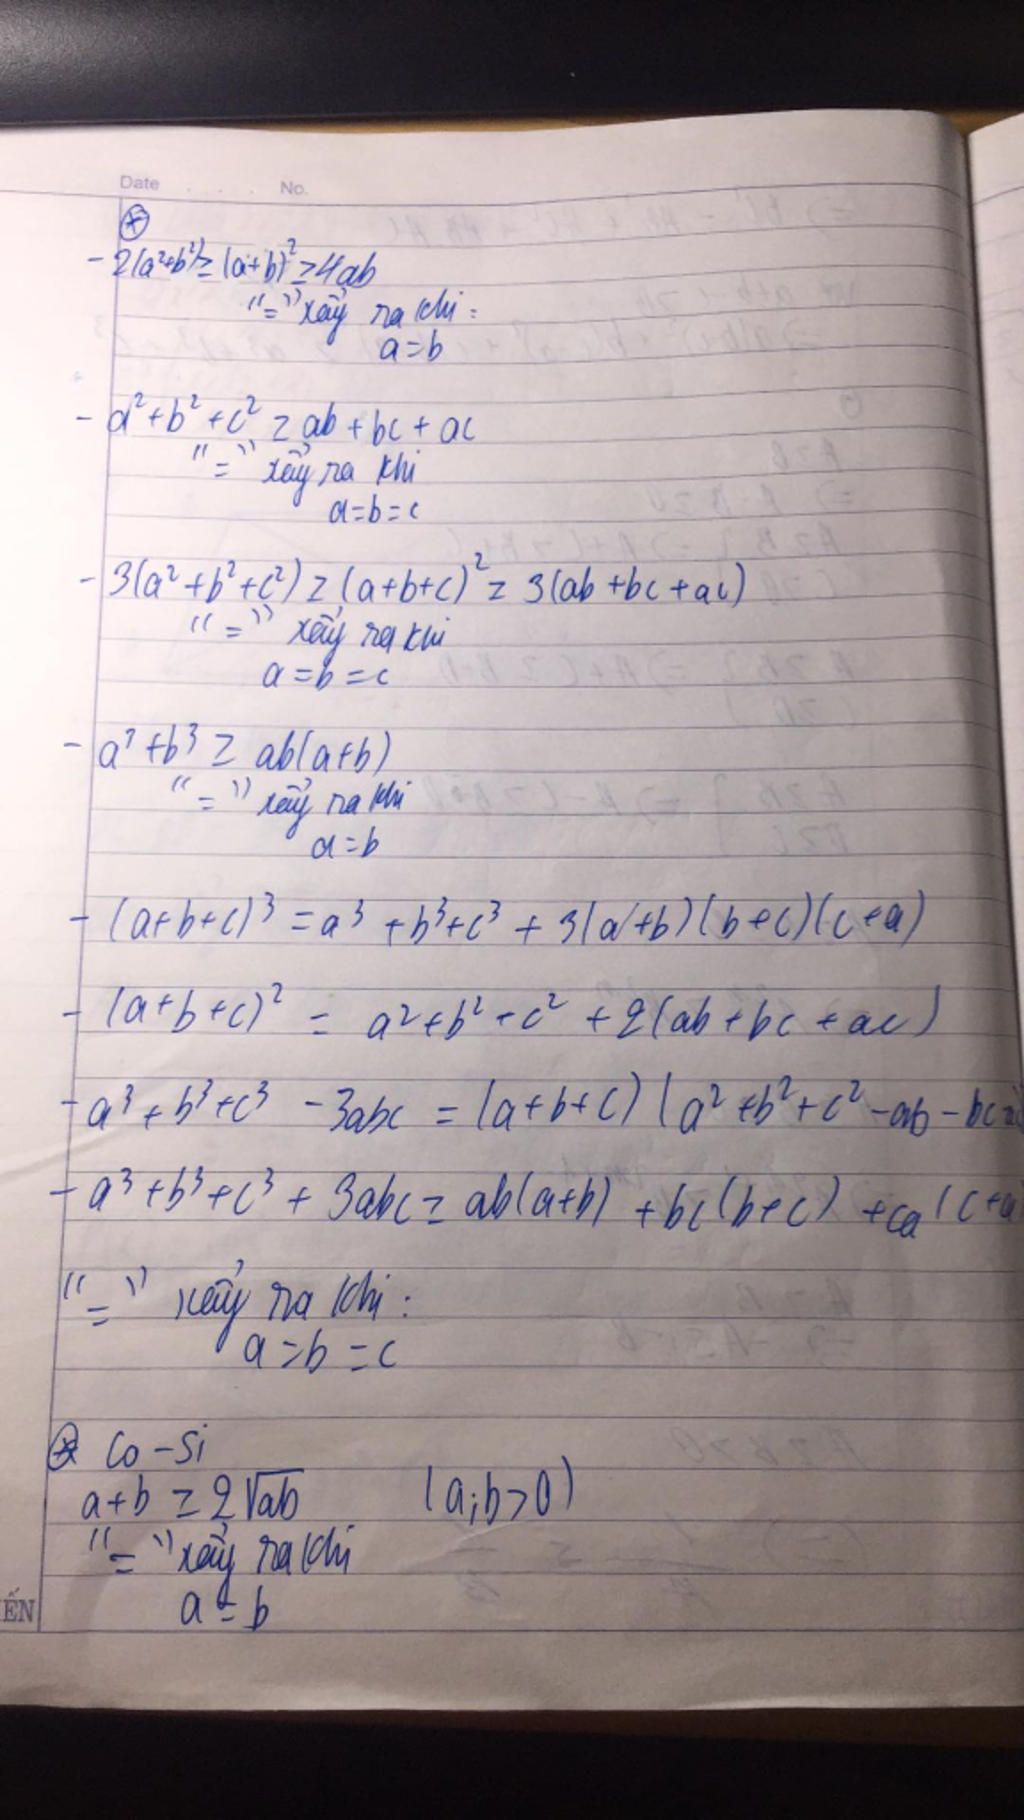 Date . . . . No.
⊛
- 2(a²+b²) ≥ (a+b)² ≥ 4ab
"=" xảy ra khi :
a=b
- a²+b²+c² ≥ ab+bc+ac
"=" xảy ra khi
a=b=c
- 3(a²+b²+c²) ≥ (a+b+c)² ≥ 3(ab+bc+ac)
"=" xảy ra khi
a=b=c
- a³+b³ ≥ ab(a+b)
"=" xảy ra khi
a=b
- (a+b+c)³ = a³+b³+c³+3(a+b)(b+c)(c+a)
- (a+b+c)² = a²+b²+c²+2(ab+bc+ac)
- a³+b³+c³-3abc = (a+b+c)(a²+b²+c²-ab-bc
- a³+b³+c³+3abc ≥ ab(a+b)+bc(b+c)+ca(c+a
"=" xảy ra khi :
a=b=c
⊛ Co-si
a+b ≥ 2√ab (a;b>0)
"=" xảy ra khi
a=b
ẾN